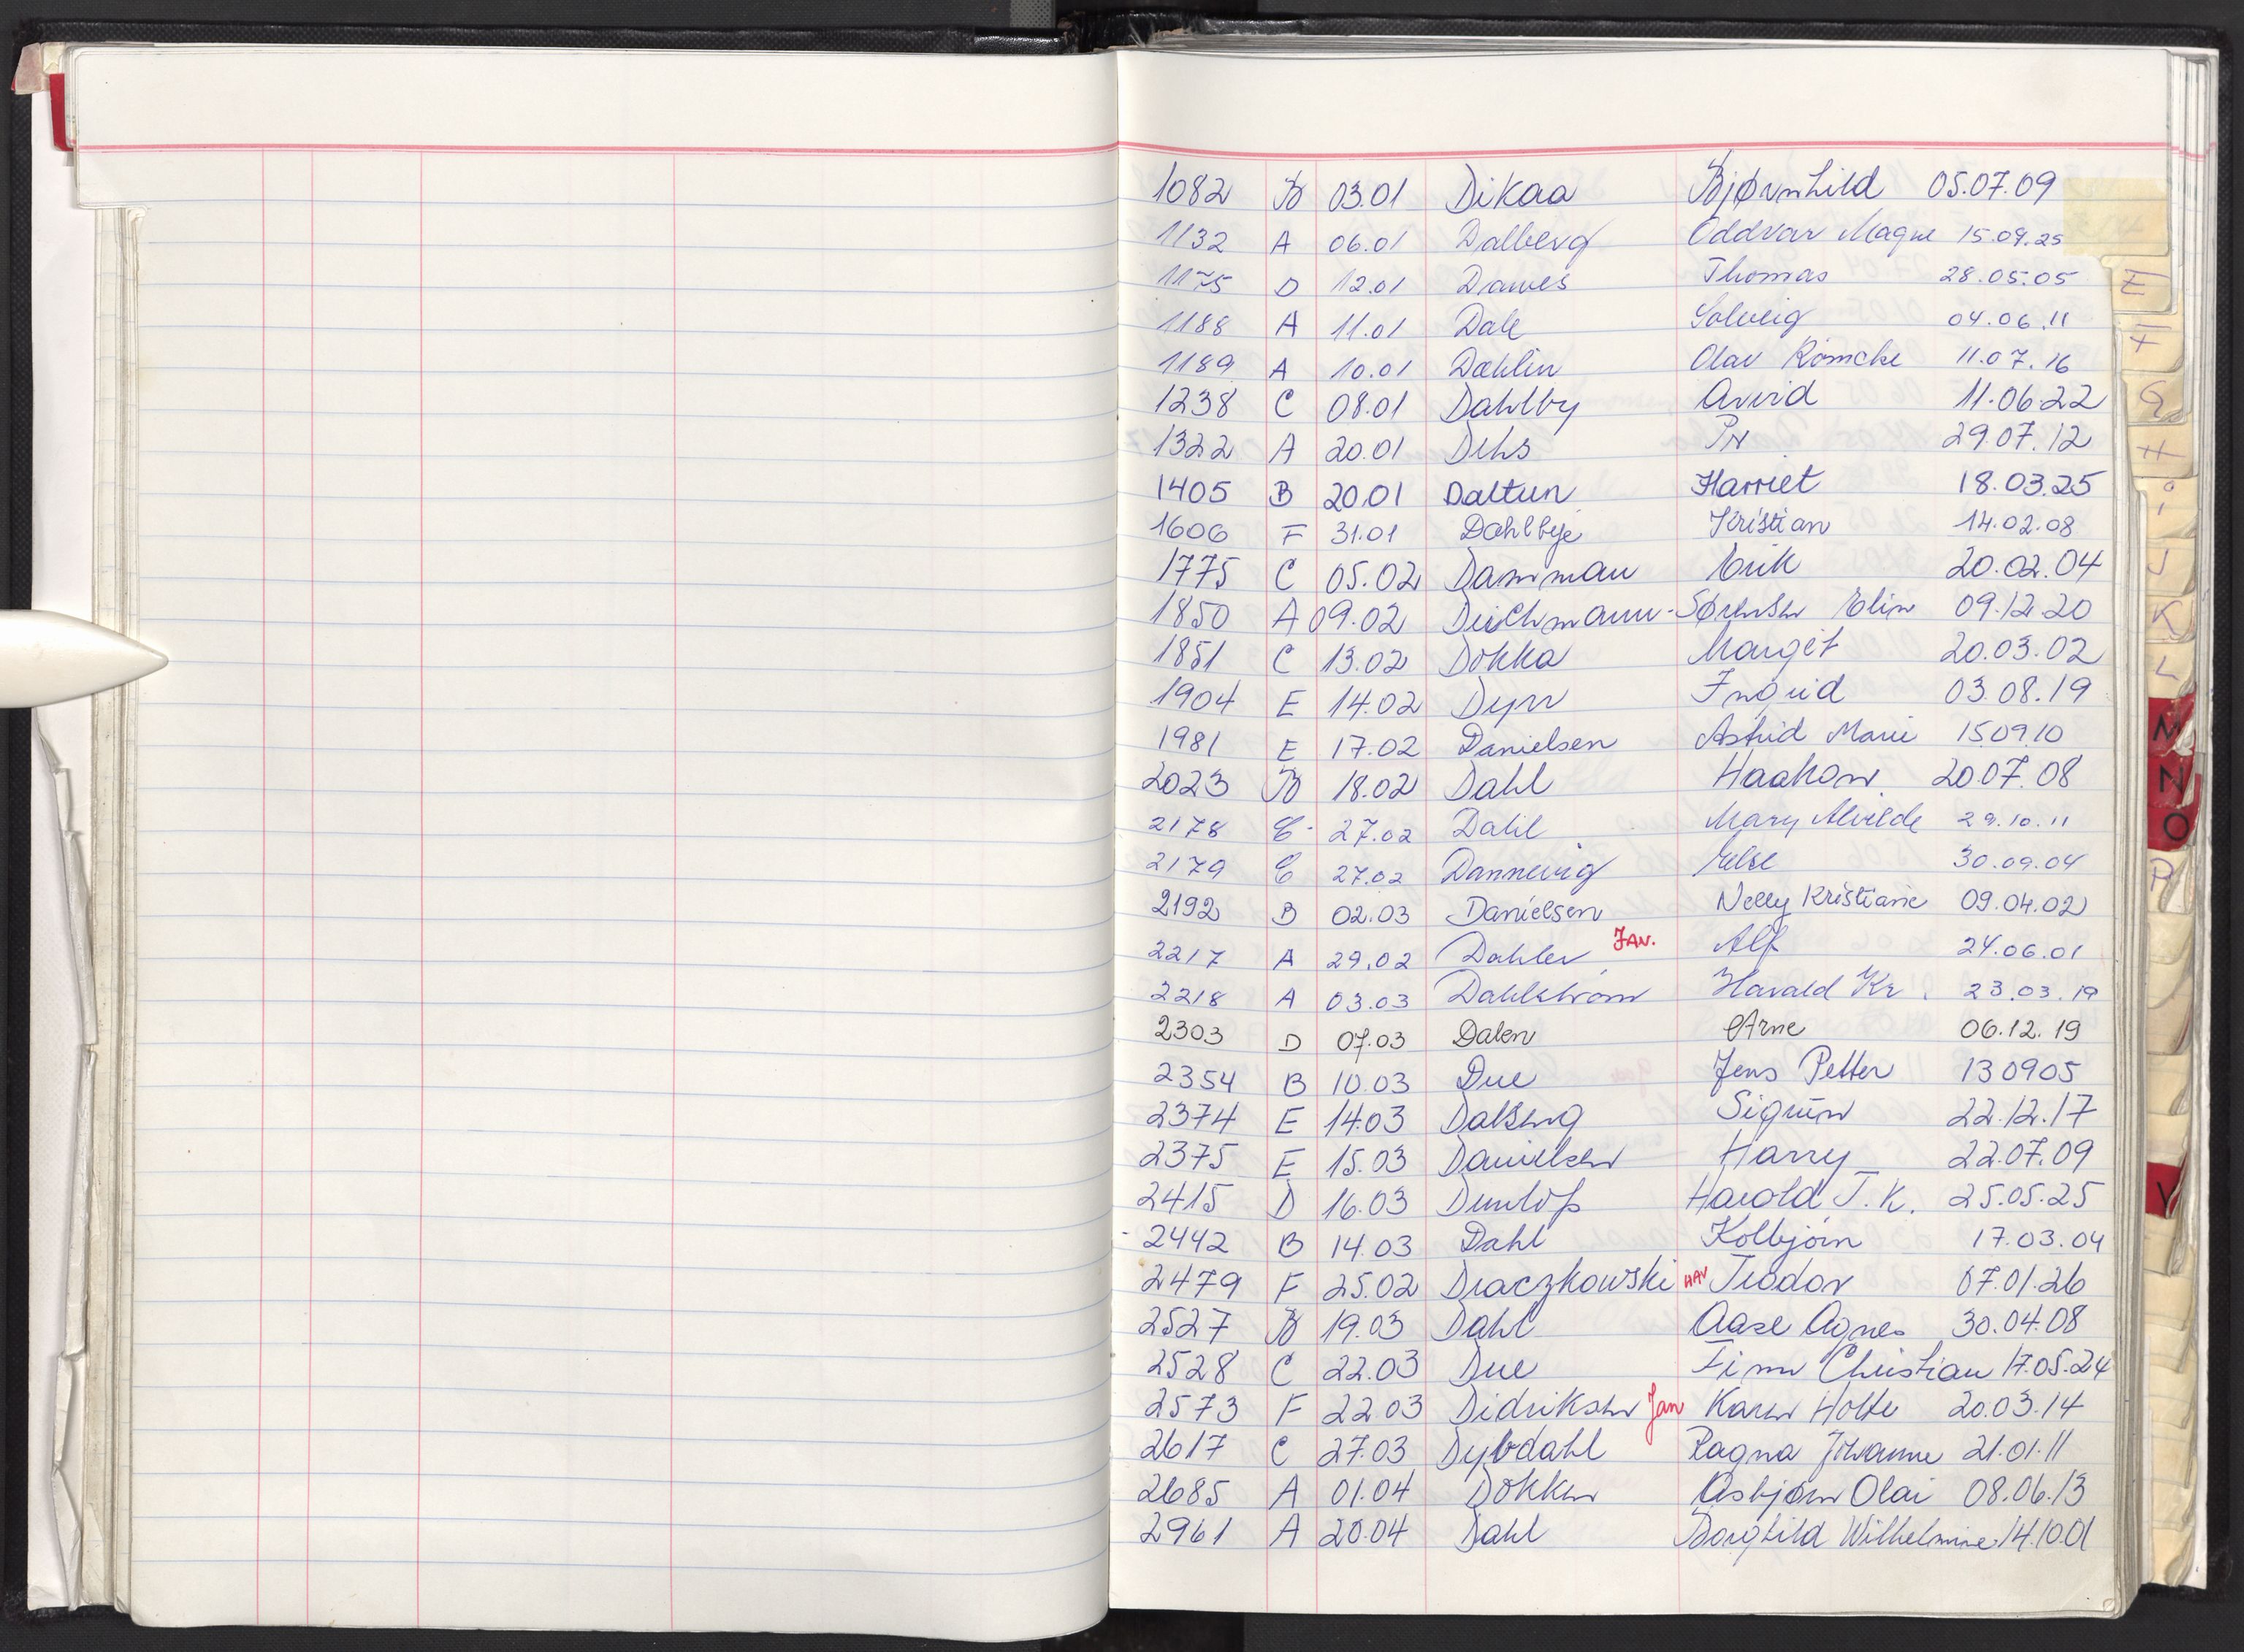 1082 B 03.01 Dikaa Bjørnhild 05.07.09
1132 A 06.01 Dalberg Oddvar Magne 15.09.25
1175 D 12.01 Dawes Thomas 28.05.05
1188 A 11.01 Dale Solveig 04.06.11
1189 A 10.01 Dahlin Olav Römcke 11.07.16
1238 C 08.01 Dahlby Arvid 11.06.22
1322 A 20.01 Dehs 29.07.12
1405 B 20.01 Daltun Harriet 18.03.25
1606 F 31.01 Dahlbye Kristian 14.02.08
1775 C 05.02 Damman Erik 20.02.04
1850 A 09.02 Deichmann-Sørensen Elin 09.12.20
1851 C 13.02 Dokka Margit 20.03.02
1904 E 14.02 Ingrid 03.08.19
1981 E 17.02 Danielsen Astrid Marie 15.09.10
2023 B 18.02 Dahl Haakon 20.07.08
2178 E 27.02 Dahl Mary Alvilde 29.10.11
2179 E 27.02 Dannevig Else 30.09.04
2192 B 02.03 Danielsen Nelly Kristiane 09.04.02
2217 A 29.02 Dahler JAN. Alf 24.06.01
2218 A 03.03 Dahlstrøm Harald Kr. 23.03.19
2303 D 07.03 Dalen Arne 06.12.19
2354 B 10.03 Due Jens Petter 130905
2374 E 14.03 Dalseng Sigrun 22.12.17
2375 E 15.03 Danielsen Harry 22.07.09
2415 D 16.03 Dunlop Harold J. K. 25.05.25
2442 B 14.03 Dahl Kolbjørn 17.03.04
2479 F 25.02 Draczkowski HAV Teodor 07.01.26
2527 B 19.03 Dahl Aase Agnes 30.04.08
2528 C 22.03 Due Finn Christian 17.05.24
2573 F 22.03 Didriksen Jan Karen Holte 20.03.14
2617 C 27.03 Dybdahl Ragna Johanne 21.01.11
2685 A 01.04 Dokken Asbjørn Olai 08.06.13
2961 A 20.04 Dahl Borghild Wilhelmine 14.10.01
E
F
G
H
i
J
K
L
M
N
O
P
V